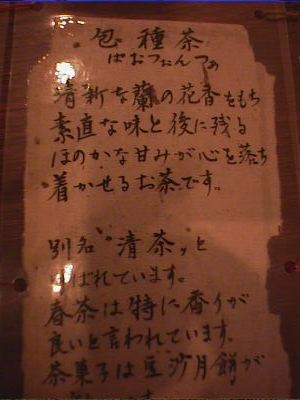 包種茶
ぱおつぉんつぁ
清新な蘭の花香をもち
素直な味と後に残る
ほのかな甘みが心を落ち
着かせるお茶です。
別名"清茶〟と
ばれています。
春茶は特に香りが
良いと言われています。
茶菓子は豆沙月餅が